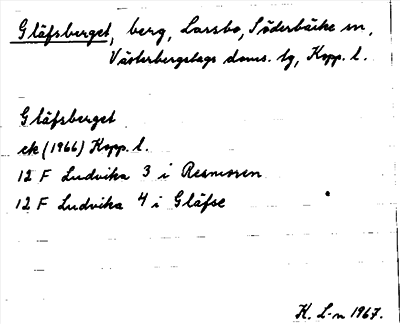 Gläfsberget, berg, Lassbo, Söderbärke sn,
Västerbergslags doms. tg, Kopp. l.
Gläfsberget
ek (1966) Kopp. l.
12 F Ludvika 3 i Resmoren
12 F Ludvika 4 i Gläfse
K. L-n 1967.